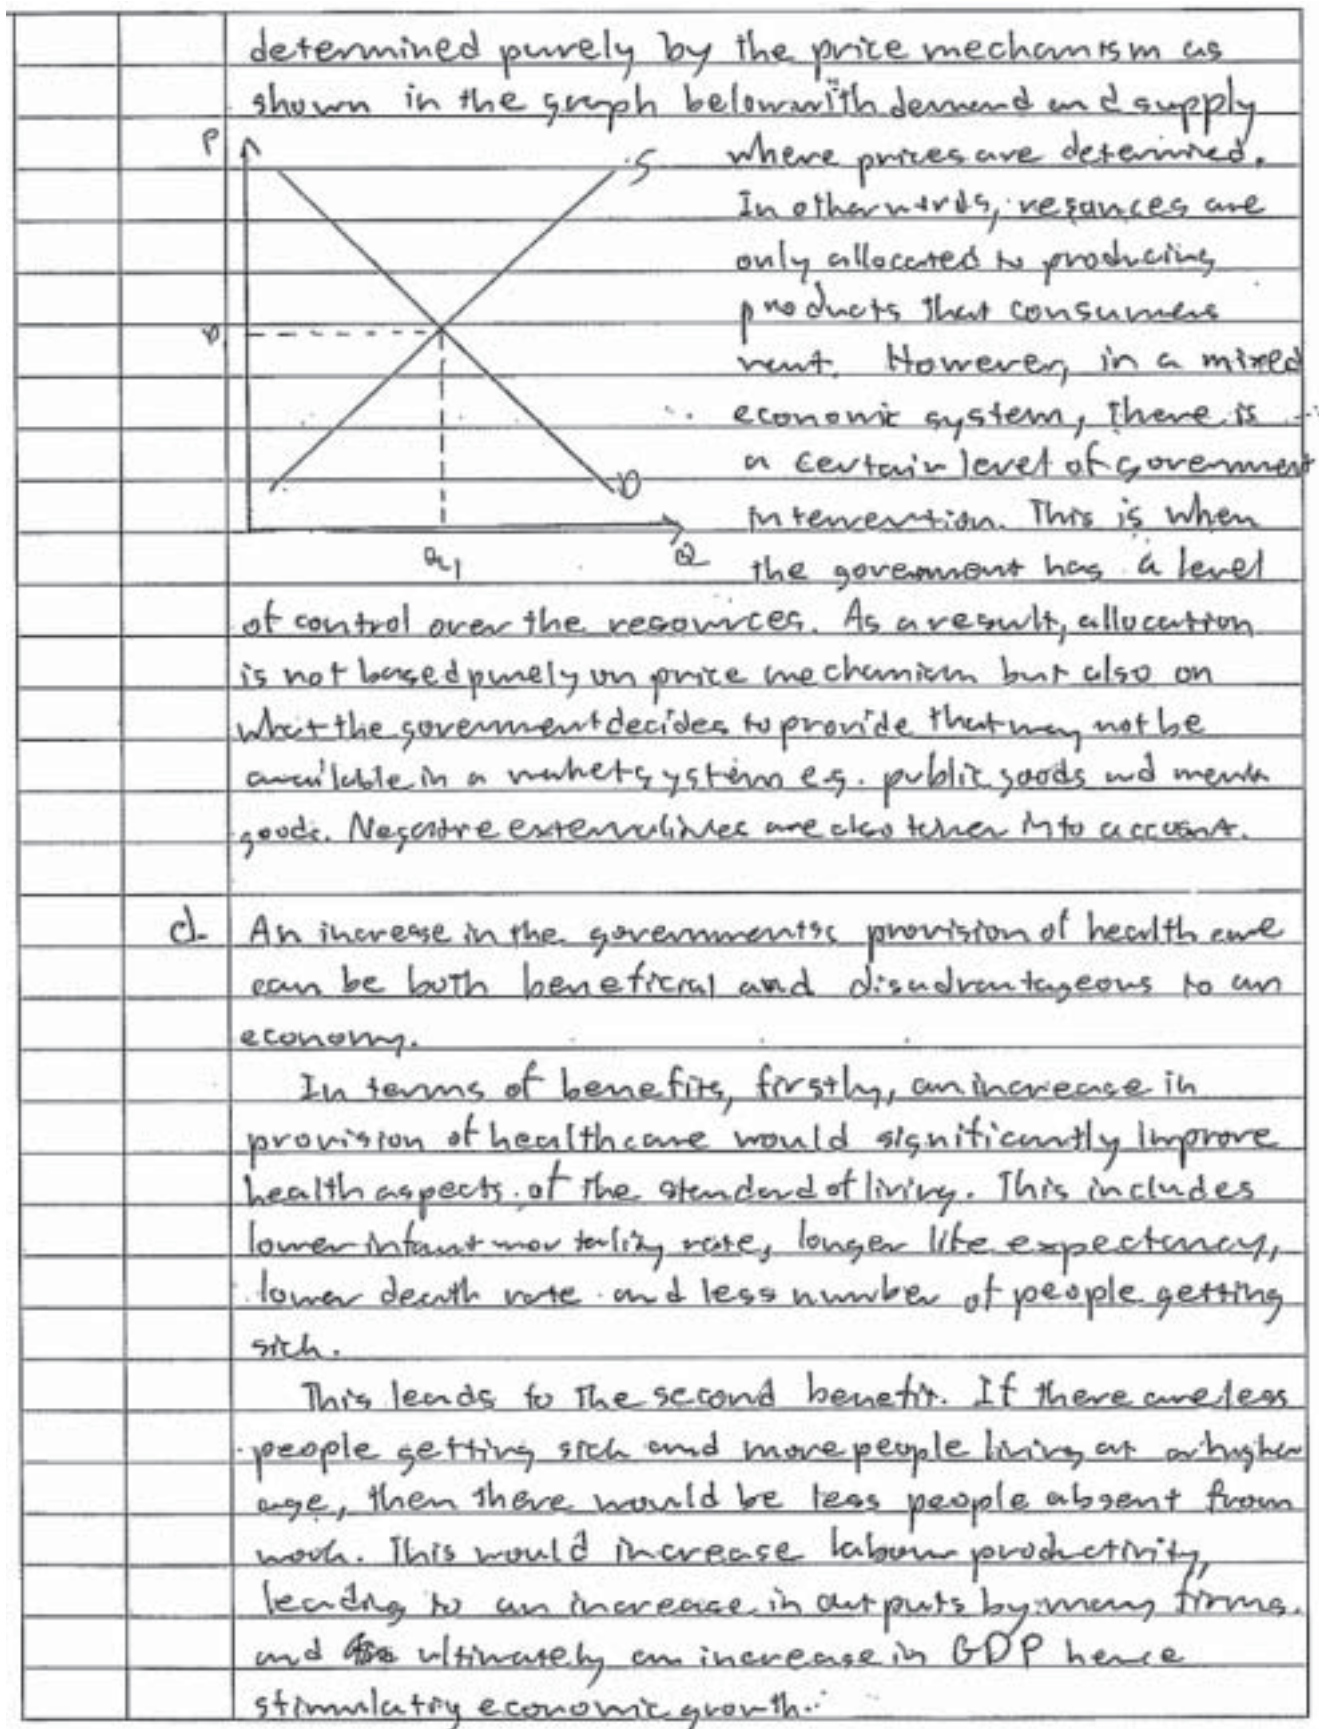 determined purely by the price mechanism as
shown in the graph below with demand and supply
P
S
where prices are determined.
In other words, resources are
only allocated to producing
products that consumers
P1
want. However, in a mixed
economic system, there is
a certain level of government
D
intervention. This is when
Q1
Q
the government has a level
of control over the resources. As a result, allocation
is not based purely on price mechanism but also on
what the government decides to provide that may not be
available in a market system e.g. public goods and merit
goods. Negative externalities are also taken into account.
d.
An increase in the governments provision of health care
can be both beneficial and disadvantageous to an
economy.
In terms of benefits, firstly, an increase in
provision of healthcare would significantly improve
health aspects of the standard of living. This includes
lower infant mortality rate, longer life expectancy,
lower death rate and less number of people getting
sick.
This leads to the second benefit. If there are less
people getting sick and more people living at a higher
age, then there would be less people absent from
work. This would increase labour productivity,
leading to an increase in outputs by many firms.
and ultimately an increase in GDP hence
stimulating economic growth.